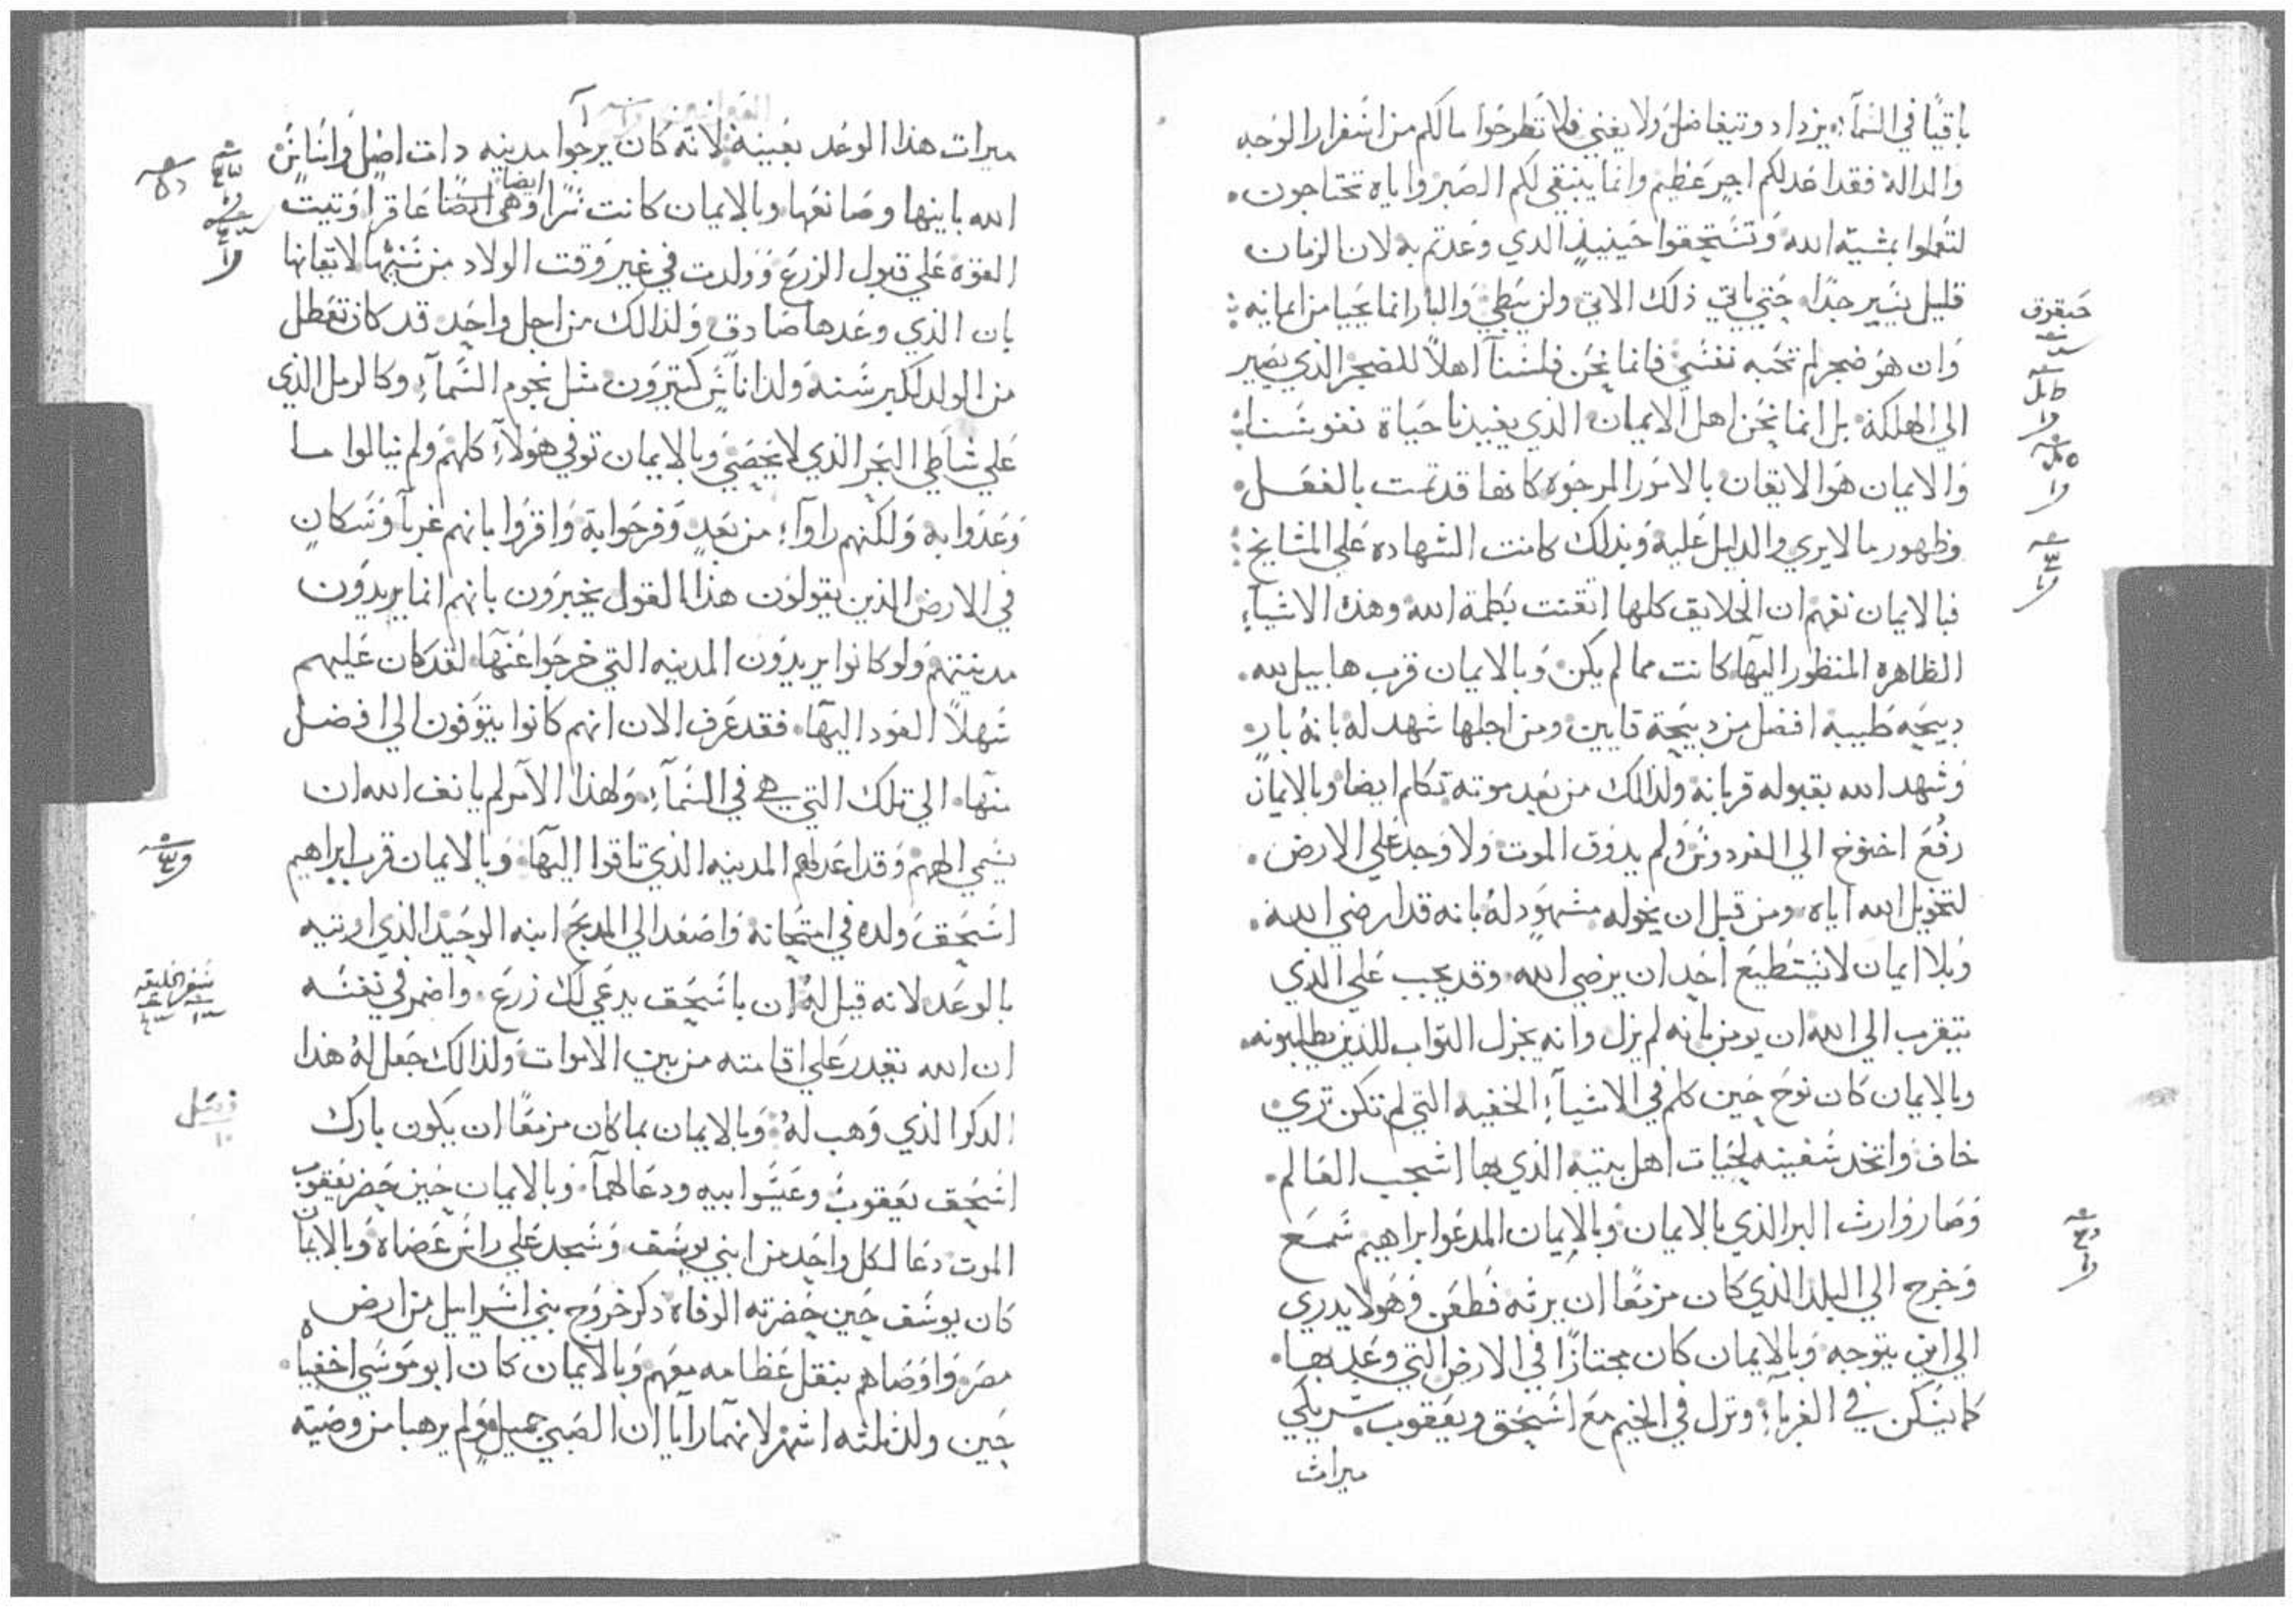 باقيًا في السمآء يزداد وتيفاضل ولا يغني فلا تطرحوا مالكم من اسفرار الوجه
والداله فقد اعد لكم اجر عظيم وانما ينبقي لكم الصبر واياه تحتاجون
لتعملوا بمشيه الله وتستحقوا حينيذ الدي وعدتم به لان الزمان
قليل يسير جدًا حتي ياتي ذلك الاتي ولن يبطي والبار انما يحيا من ايمانه
حبقوق
وان هو ضجر لم تحبه نفسي فانما نحن فلسنآ اهلاً للضجر الذي يصير
الي الهلكة بل انما نحن اهل الايمان الذي يفيدنا حياة نفوسنا
والايمان هو الايقان بالامور المرجوه كانها قد تمت بالفعل
وظهور ما لا يري والدليل عليه وبذلك كانت الشهاده علي المشايخ
فبالايمان نفهم ان الخلايق كلها اتقنت بكلمة الله وهذه الاشيآء
الظاهره المنظور اليها كانت مما لم يكن وبالايمان قرب هابيل لله
دبيحه طيبه افضل من دبيحة قايين ومن اجلها شهد له بانهُ بار
وشهد الله بقبوله قربانه ولذالك من بعد موته تكلم ايضا وبالايمان
رفع اخنوخ الي الفردوس ولم يدوق الموت ولا وجد علي الارض
لتحويل الله اياه ومن قبل ان يحوله مشهود لهُ بانه قد ارضي الله
وبلا ايمان لا يستطيع احد ان يرضي الله وقد يجب علي الذي
يتقرب الي الله ان يومن بانه لم يزل وانه يجزل التواب للذين يطلبونه
وبالايمان كان نوح حين كلم في الاشيآء الخفيه التي لم تكن تري
خاف واتخد سفينه لحيات اهل بيته الذي بها اشجب العالم
وصار وارث البر الذي بالايمان وبالايمان المدعوا ابراهيم سمع
وخرج الي البلد الذي كان مزمعًا ان يرثه فظعن وهو لا يدري
الي اين يتوجه وبالايمان كان مجتازًا في الارض التي وعد بها
كما يسكن في الغربآء ونزل في الخيم مع اسحق ويعقوب شريكي
ميراث
ميرات هذا الوعد بعينه لانه كان يرجوا مدينه دات اصل واساس
الله بانيها وصانعها وبالايمان كانت سرا وهي ايضا عاقرا اوتيت
ايضا
القوه علي قبول الزرع وولدت في غير وقت الولاد من سنها لاتقانها
بان الذي وعدها صادق ولذالك من اجل واحد قد كان تعطل
من الولد لكبر سنه ولد اناس كتيرون مثل نجوم السمآء وكالرمل الذي
علي شاطي البحر الذي لا يحصي وبالايمان توفي هولآء كلهم ولم ينالوا ما
وعدوا به ولكنهم راوآء من بعد وفرحوا به واقروا بانهم غربآ وسكان
في الارض الذين يقولون هذا القول يخبرون بانهم انما يريدون
مدينتهم ولو كانوا يريدون المدينه التي خرجوا عنها لقد كان عليهم
سهلاً العود اليها فقد عرف الان انهم كانوا يتوقون الي افضل
منها الي تلك التي هي في السمآء ولهذا الامر لم يانف الله ان
يسمي الههم وقد اعد لهم المدينه الذي تاقوا اليها وبالايمان قرب ابراهيم
اسحق ولده في امتحانه واصعد الي المدبح ابنه الوحيد الذي اوتيه
بالوعد لانه قيل لهُ ان باسحق يدعي لك زرع واضمر في نفسه
سفر الخليقه
ان الله يقدر علي اقامته من بين الاموات ولذالك جعل لهُ هذا
الدكر الذي وهب لهُ وبالايمان بما كان مزمعًا ان يكون بارك
فصل ١٠
اسحق يعقوب وعيسوا بنيه ودعا لهما وبالايمان حين حضر يعقوب
الموت دعا لكل واحد من ابني يوسف وسجد علي راس عصاه وبالايمان
كان يوسف حين حضرته الوفاه دكر خروج بني اسرايل من ارض
مصر واوصاهم بنقل عظامه معهم وبالايمان كان ابو موسي اخفياه
حين ولد ثلثه اشهر لانهما رايا ان الصبي جميل ولم يرهبا من وصيه